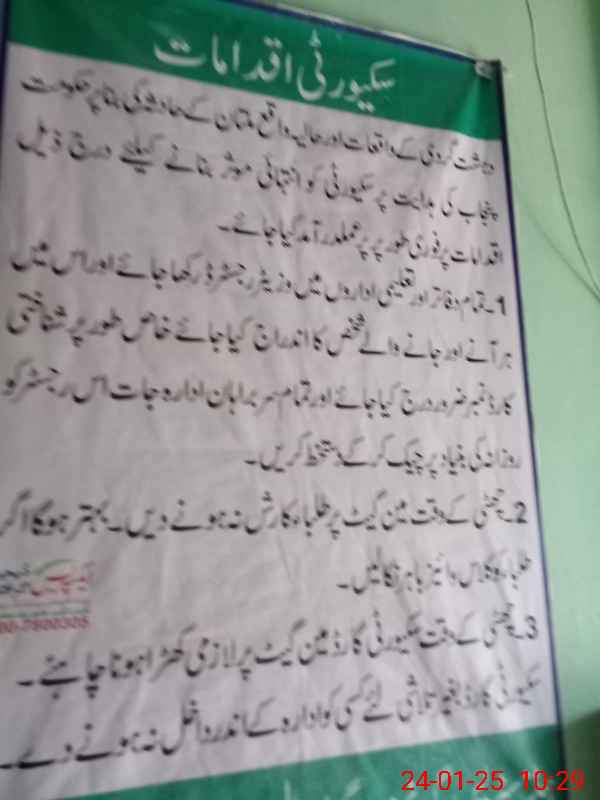 سکیورٹی اقدامات
دہشت گردی کے واقعات اور حالیہ واقع ملتان کے حادثہ کی بنا پر حکومت
پنجاب کی ہدایت پر سکیورٹی کو انتہائی موثر بنانے کیلئے درج ذیل
اقدامات پر فوری طور پر پر عملدرآمد کیا جائے۔
1۔ تمام دفاتر اور تعلیمی اداروں میں وزیٹر رجسٹرڈ رکھا جائے اور اس میں
ہر آنے اور جانے والے شخص کا اندراج کیا جائے خاص طور پر شناختی
کارڈ نمبر ضرور درج کیا جائے اور تمام سربراہان ادارہ جات اس رجسٹر کو
روزانہ کی بنیاد پر چیک کر کے دستخط کریں۔
2۔ چھٹی کے وقت مین گیٹ پر طلباء کا رش نہ ہونے دیں۔ بہتر ہوگا اگر
طلباء کو کلاس وائیز باہر نکالیں۔
00-7800305
3۔ چھٹی کے وقت سکیورٹی گارڈ مین گیٹ پر لازمی کھڑا ہونا چاہئے۔
سکیورٹی گارڈ بغیر تلاشی لئے کسی کو ادارہ کے اندر داخل نہ ہونے دے۔
24-01-25 10:29